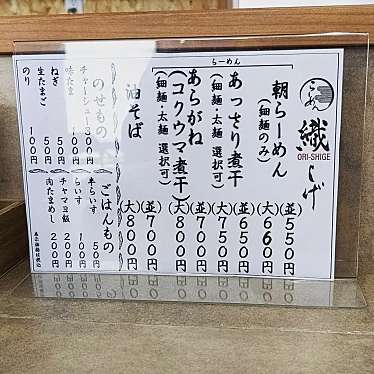 らーめん
織しげ
ORI-SHIGE
らーめん
朝らーめん
(細麺のみ)
(並)550円
(大)660円
あっさり煮干
(細麺・太麺 選択可)
(並)650円
(大)750円
あらがね
(コクウマ煮干)
(細麺・太麺 選択可)
(並)700円
(大)800円
油そば
(並)700円
(大)800円
のせもの
チャーシュー 300円
味たま 100円
ねぎ 50円
生たまご 50円
のり 100円
ごはんもの
半らいす 50円
らいす 100円
チャマヨ飯 200円
肉たまめし 200円